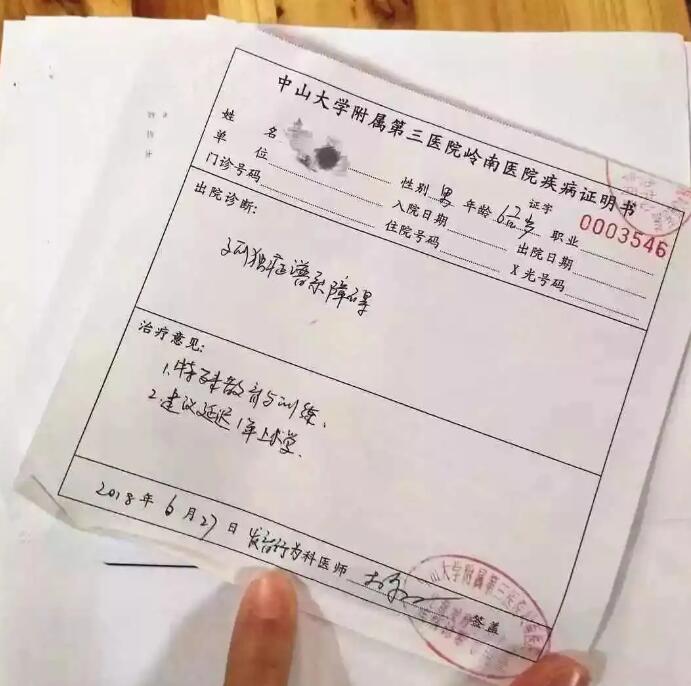 中山大学附属第三医院岭南医院疾病证明书
姓名 性别 男 年龄 岁 证字 0003546
单位 入院日期 职业
门诊号码 住院号码 出院日期
X光号码
出院诊断:
孤独症谱系障碍
治疗意见:
1.特殊教育与训练、
2.建议延迟1年上小学.
2018年6月27日 发育行为科医师 签盖
山大学附属第三